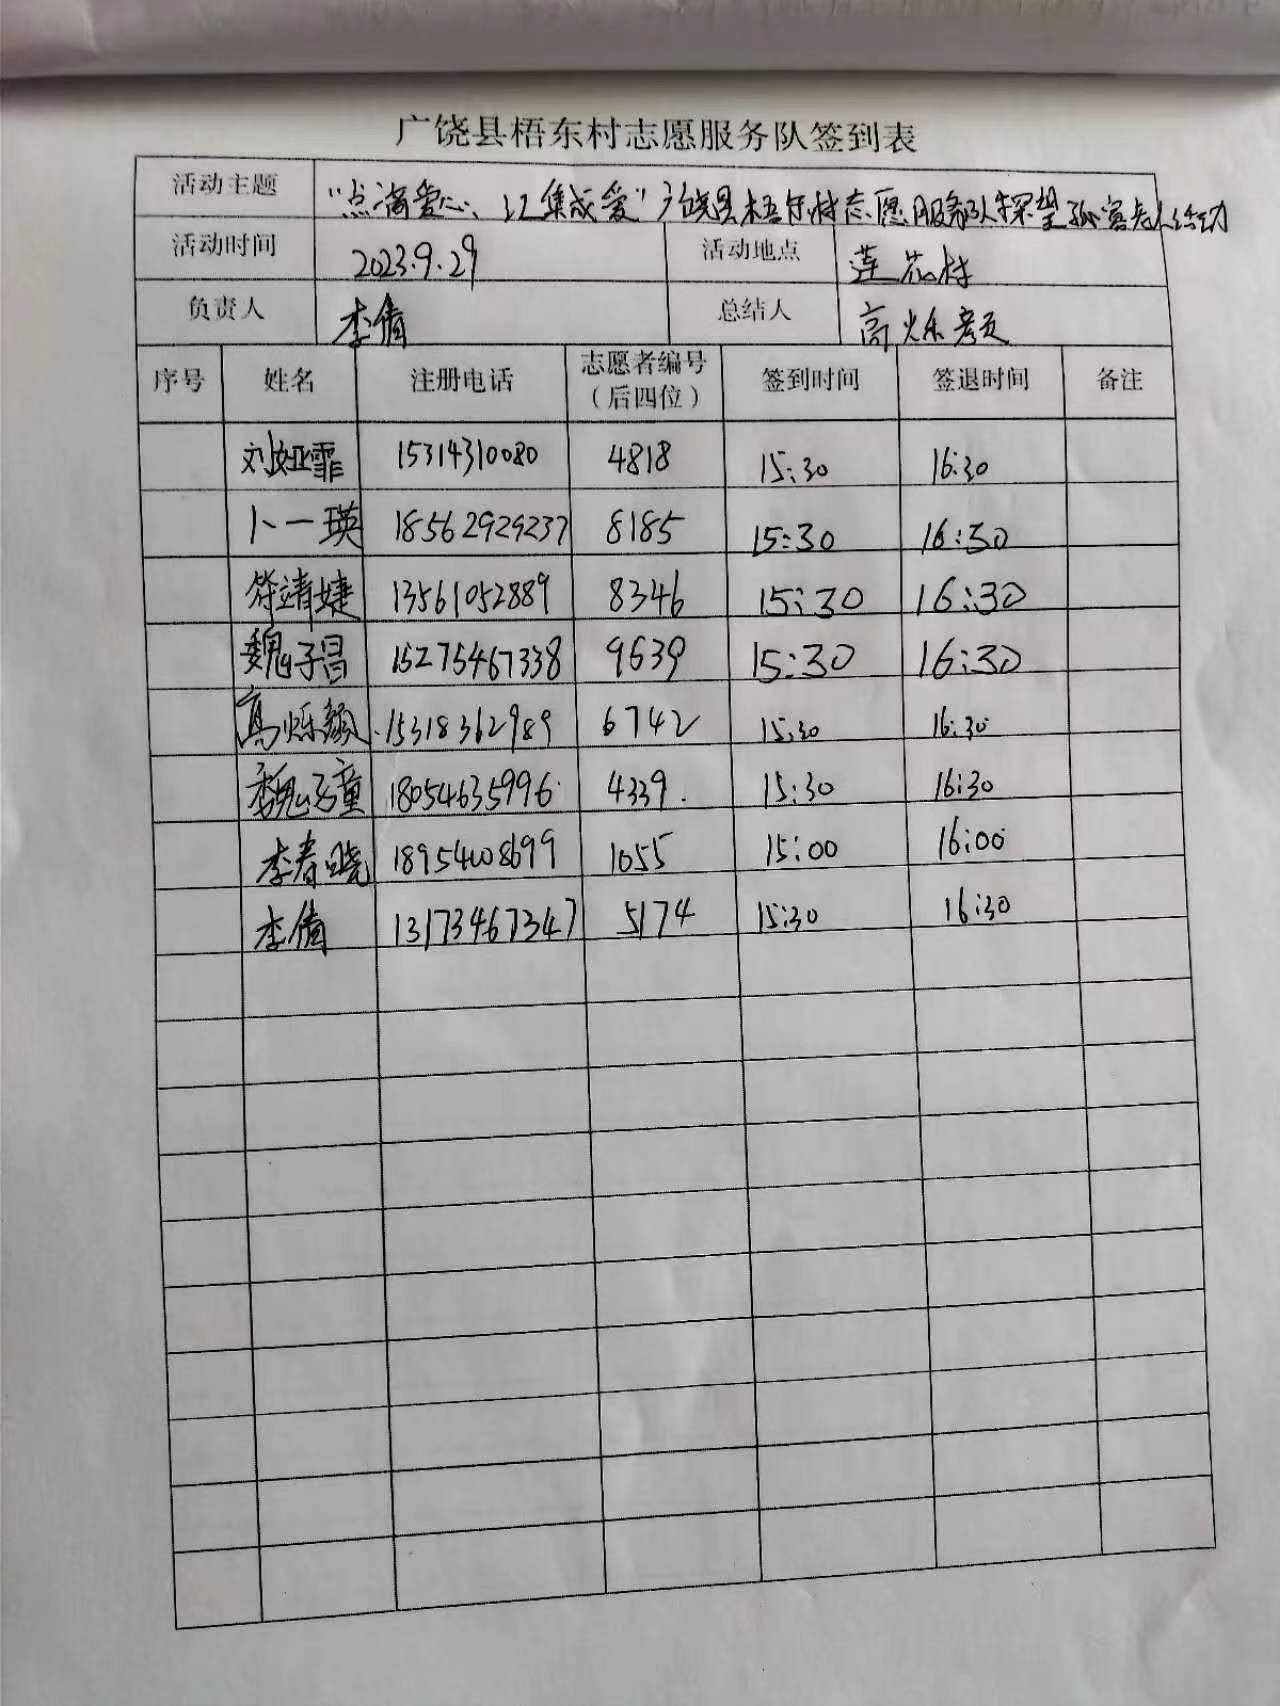 广饶县梧东村志愿服务队签到表
活动主题 “点滴爱心、汇集成爱”广饶县梧东村志愿服务队探望孤寡老人活动
活动时间 2023.9.29 活动地点 莲花村
负责人 李倩 总结人 高烁颜
序号 姓名 注册电话 志愿者编号（后四位） 签到时间 签退时间 备注
刘娅霏 15314310080 4818 15:30 16:30
卜一瑛 18562929237 8185 15:30 16:30
符靖婕 13561052889 8346 15:30 16:30
魏子昌 15275467338 9639 15:30 16:30
高烁颜 15318362989 6742 15:30 16:30
魏子童 18054635996 4339 15:30 16:30
李春晓 18954008699 1055 15:00 16:00
李倩 13173467347 5174 15:30 16:30